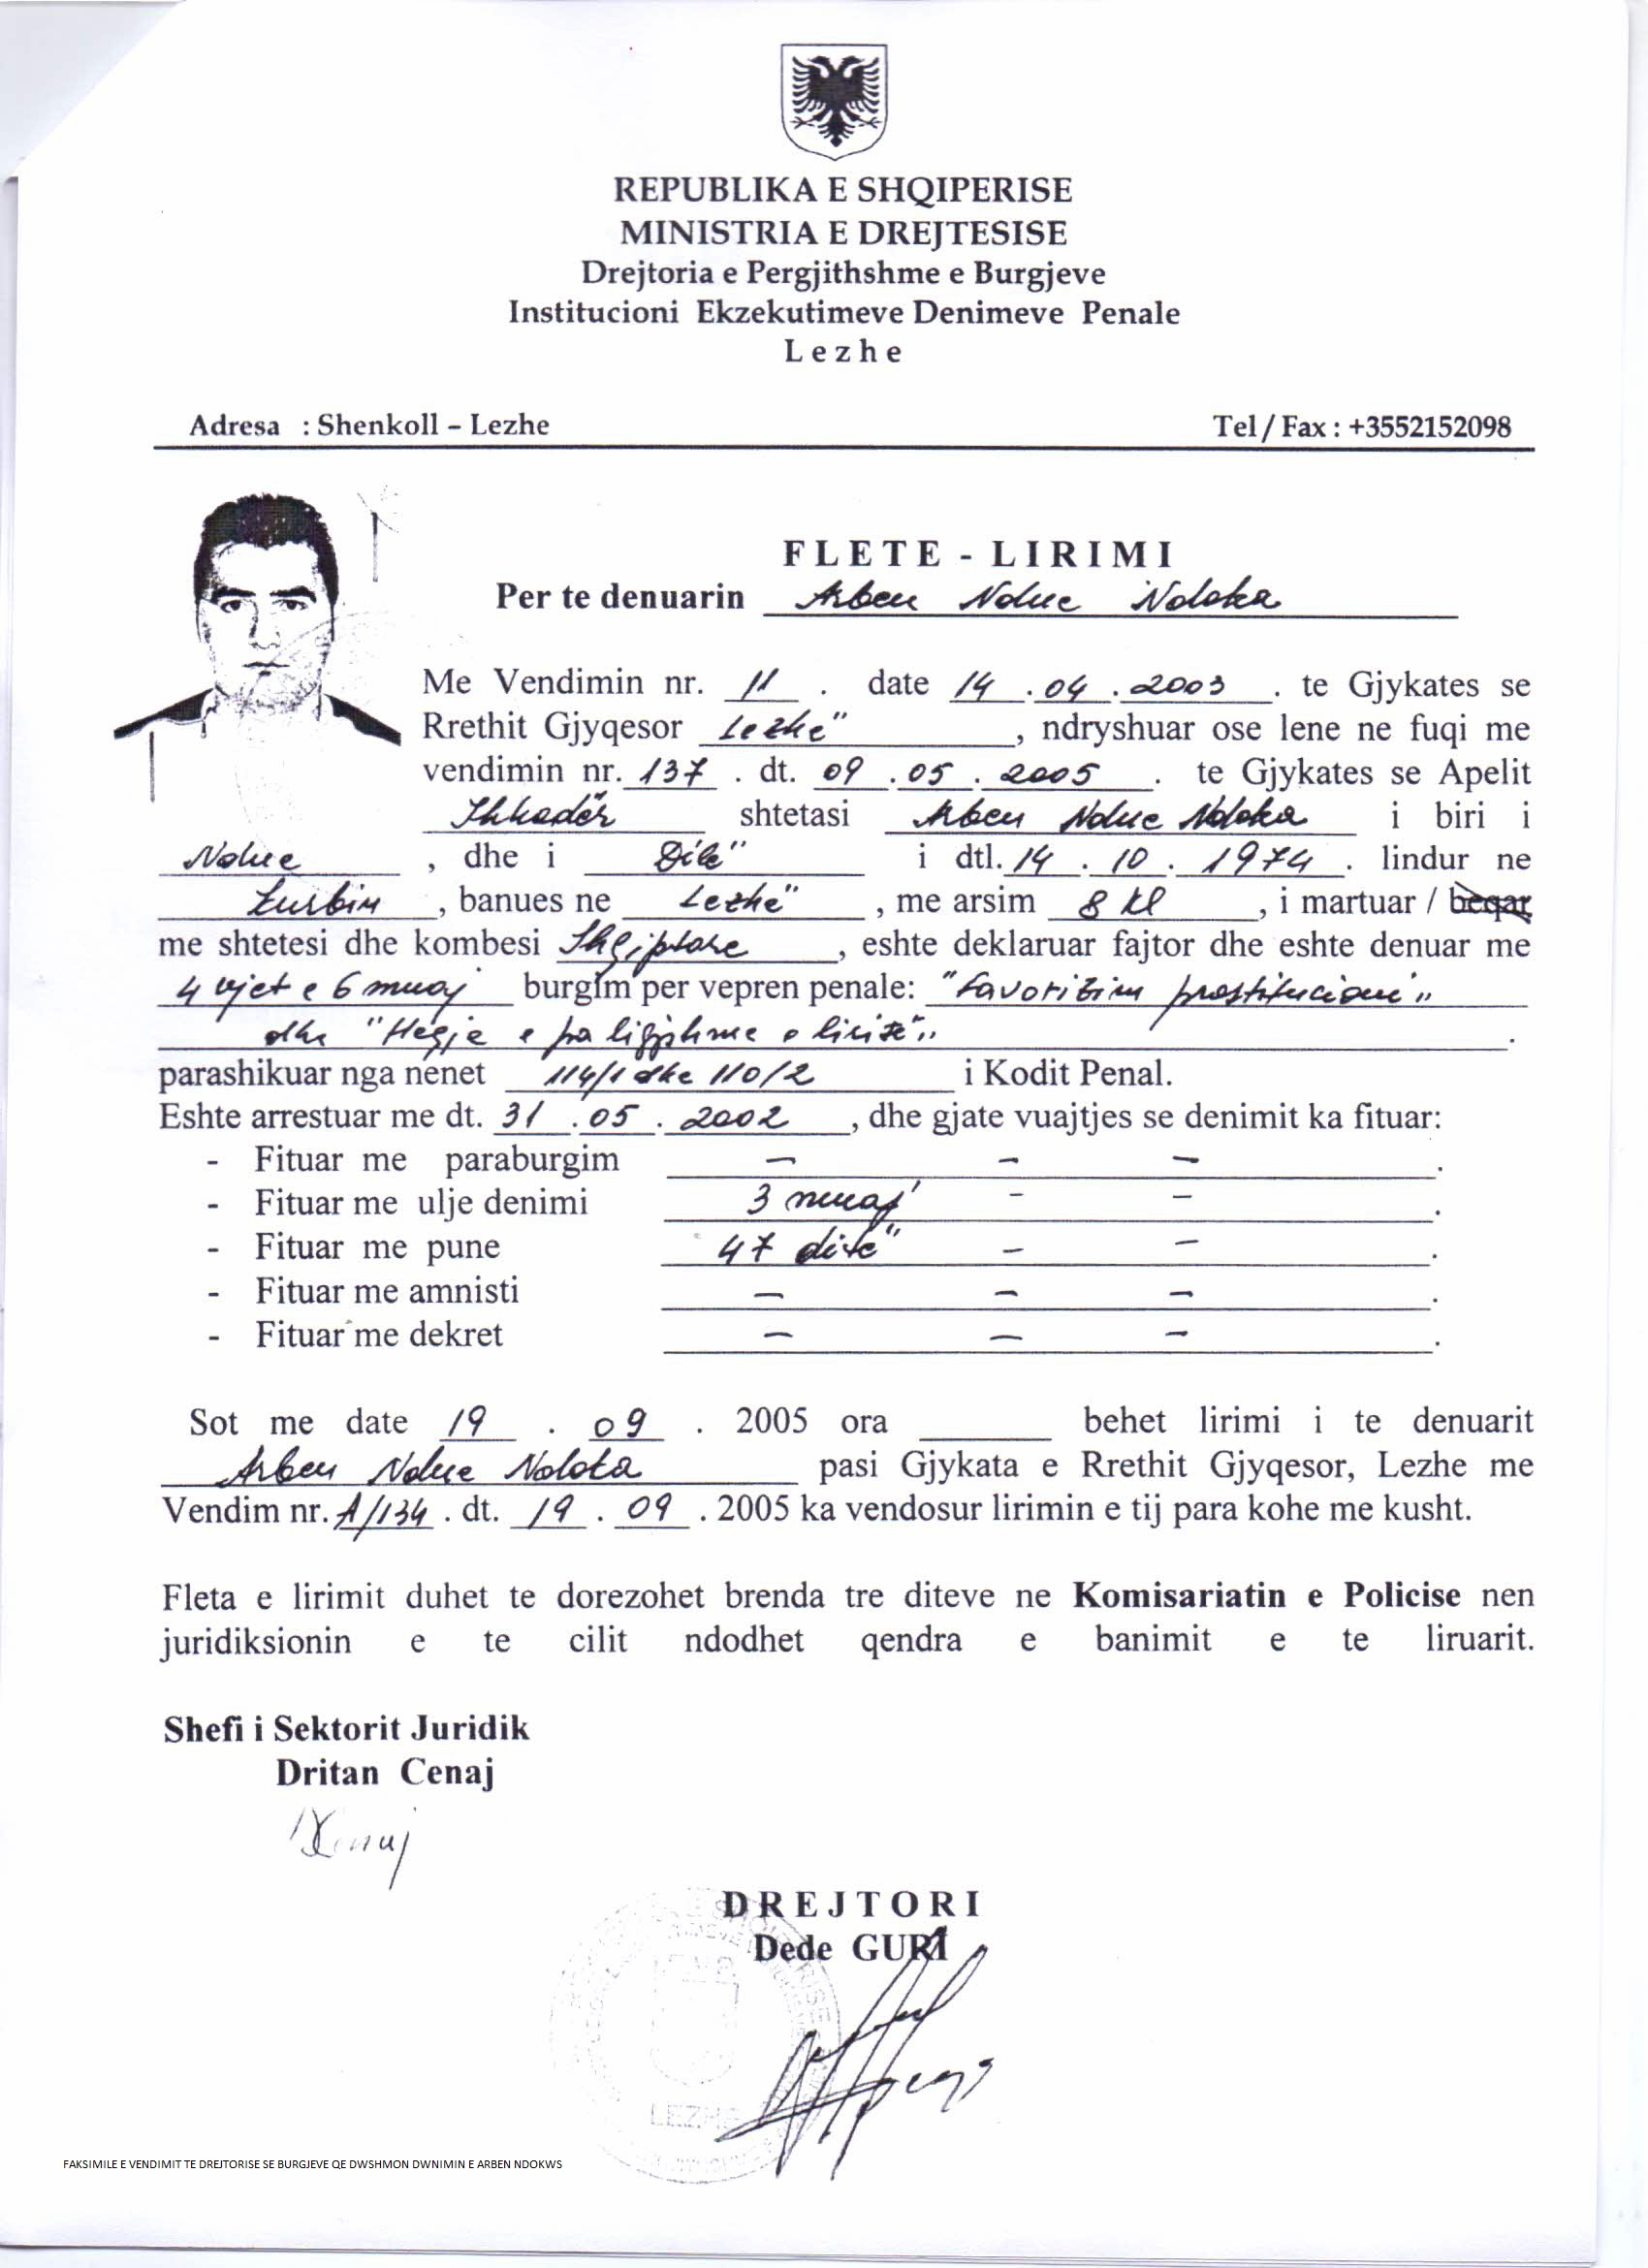 REPUBLIKA E SHQIPERISE
MINISTRIA E DREJTESISE
Drejtoria e Pergjithshme e Burgjeve
Institucioni Ekzekutimeve Denimeve Penale
Lezhe
Adresa : Shenkoll – Lezhe Tel / Fax : +3552152098
FLETE - LIRIMI
Per te denuarin Arben Ndue Ndoka
Me Vendimin nr. 11 . date 14 . 04 . 2003 . te Gjykates se
Rrethit Gjyqesor Lezhë, ndryshuar ose lene ne fuqi me
vendimin nr. 137 . dt. 09 . 05 . 2005 . te Gjykates se Apelit
Shkodër shtetasi Arben Ndue Ndoka i biri i
Ndue , dhe i Dilë i dtl. 14 . 10 . 1974 . lindur ne
, banues ne Lezhë , me arsim 8 kl , i martuar / beqar
me shtetesi dhe kombesi Shqiptare , eshte deklaruar fajtor dhe eshte denuar me
4 vjet e 6 muaj burgim per vepren penale: "Favorizim prostitucioni"
dhe "Heqje e paligjshme e lirisë"
parashikuar nga nenet 114/1 dhe 110/2 i Kodit Penal.
Eshte arrestuar me dt. 31 . 05 . 2002 , dhe gjate vuajtjes se denimit ka fituar:
- Fituar me paraburgim – – – .
- Fituar me ulje denimi 3 muaj – – .
- Fituar me pune 47 ditë – – .
- Fituar me amnisti – – – .
- Fituar me dekret – – – .
Sot me date 19 . 09 . 2005 ora ______ behet lirimi i te denuarit
Arben Ndue Ndoka pasi Gjykata e Rrethit Gjyqesor, Lezhe me
Vendim nr. A/134 . dt. 19 . 09 . 2005 ka vendosur lirimin e tij para kohe me kusht.
Fleta e lirimit duhet te dorezohet brenda tre diteve ne Komisariatin e Policise nen
juridiksionin e te cilit ndodhet qendra e banimit e te liruarit.
Shefi i Sektorit Juridik
Dritan Cenaj
DREJTORI
Dede GURI
LEZHE
FAKSIMILE E VENDIMIT TE DREJTORISE SE BURGJEVE QE DWSHMON DWNIMIN E ARBEN NDOKWS